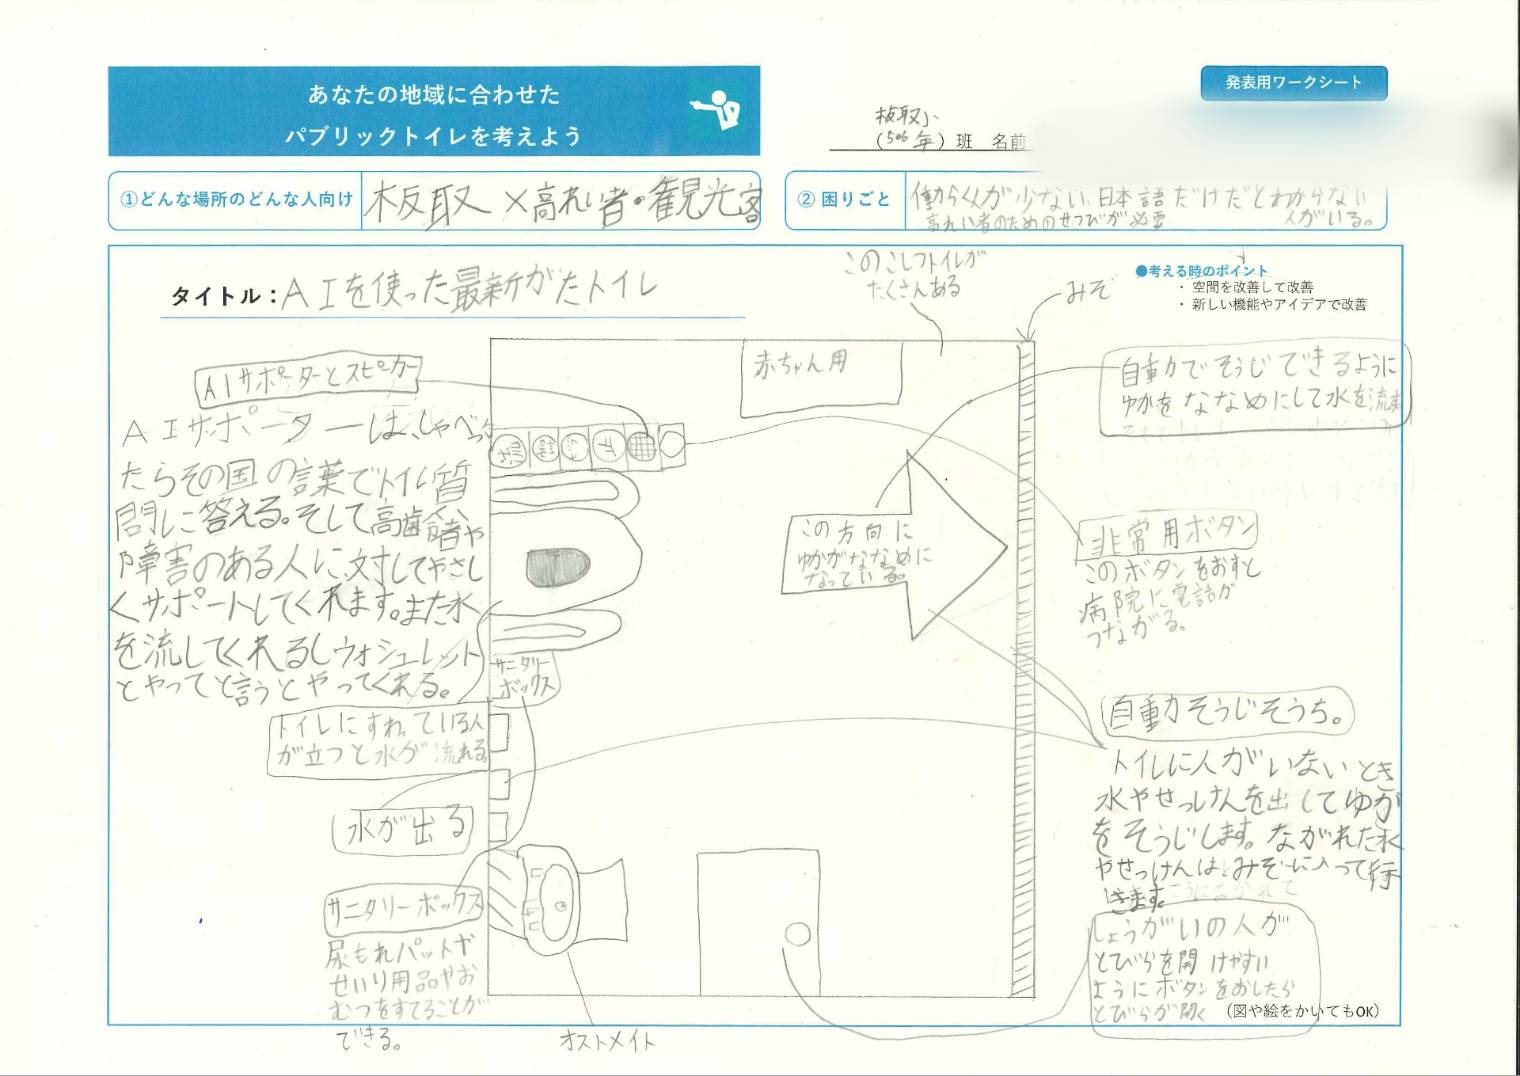 あなたの地域に合わせた
パブリックトイレを考えよう
発表用ワークシート
板取小
(5の6年)班 名前
①どんな場所のどんな人向け
板取×高れい者・観光客
②困りごと
働らく人が少ない、日本語だけだとわからない
高れい者のためのせつびが必要 人がいる。
タイトル:AIを使った最新がたトイレ
このこしつトイレが
たくさんある
みぞ
●考える時のポイント
・空間を改善して改善
・新しい機能やアイデアで改善
AIサポーターとスピーカー
AIサポーターは、しゃべっ
たらその国の言葉でトイレ質
問しに答える。そして高齢者や
障害のある人に対してやさし
くサポートしてくれます。また水
を流してくれるしウォシュレット
とやってと言うとやってくれる。
赤ちゃん用
自動でそうじできるように
ゆかをななめにして水を流す
この方向に
ゆかがななめに
なっている。
非常用ボタン
このボタンをおすと
病院に電話が
つながる。
サニタリー
ボックス
トイレにすわっている人
が立つと水が流れる
水が出る
自動そうじそうち。
トイレに人がいないとき
水やせっけんを出してゆか
をそうじします。ながれた水
やせっけんは、みぞに入って行
きます。
サニタリーボックス
尿もれパットや
せいり用品やお
むつをすてることが
できる。
オストメイト
しょうがいの人が
とびらを開けやすい
ようにボタンをおしたら
とびらが開く
(図や絵をかいてもOK)